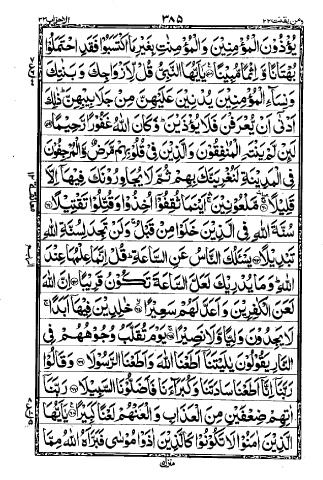 الاحزاب ٣٣ ٣٨٥ ومن يقنت ٢٢
يُؤْذُوْنَ الْمُؤْمِنِيْنَ وَالْمُؤْمِنٰتِ بِغَيْرِ مَا اكْتَسَبُوْا فَقَدِ احْتَمَلُوْا
بُهْتَانًا وَّاِثْمًا مُّبِيْنًا ﴿٥٨﴾ يٰٓاَيُّهَا النَّبِيُّ قُلْ لِّاَزْوَاجِكَ وَبَنٰتِكَ
وَنِسَآءِ الْمُؤْمِنِيْنَ يُدْنِيْنَ عَلَيْهِنَّ مِنْ جَلَابِيْبِهِنَّ ؕ ذٰلِكَ
اَدْنٰٓى اَنْ يُّعْرَفْنَ فَلَا يُؤْذَيْنَ ؕ وَكَانَ اللّٰهُ غَفُوْرًا رَّحِيْمًا ﴿٥٩﴾
لَئِنْ لَّمْ يَنْتَهِ الْمُنٰفِقُوْنَ وَالَّذِيْنَ فِيْ قُلُوْبِهِمْ مَّرَضٌ وَّالْمُرْجِفُوْنَ
فِي الْمَدِيْنَةِ لَنُغْرِيَنَّكَ بِهِمْ ثُمَّ لَا يُجَاوِرُوْنَكَ فِيْهَآ اِلَّا
قَلِيْلًا ﴿٦٠﴾ مَّلْعُوْنِيْنَ ۛ اَيْنَمَا ثُقِفُوْٓا اُخِذُوْا وَقُتِّلُوْا تَقْتِيْلًا ﴿٦١﴾
سُنَّةَ اللّٰهِ فِي الَّذِيْنَ خَلَوْا مِنْ قَبْلُ ۚ وَلَنْ تَجِدَ لِسُنَّةِ اللّٰهِ
تَبْدِيْلًا ﴿٦٢﴾ يَسْئَلُكَ النَّاسُ عَنِ السَّاعَةِ ؕ قُلْ اِنَّمَا عِلْمُهَا عِنْدَ
اللّٰهِ ؕ وَمَا يُدْرِيْكَ لَعَلَّ السَّاعَةَ تَكُوْنُ قَرِيْبًا ﴿٦٣﴾ اِنَّ اللّٰهَ
لَعَنَ الْكٰفِرِيْنَ وَاَعَدَّ لَهُمْ سَعِيْرًا ﴿٦٤﴾ خٰلِدِيْنَ فِيْهَآ اَبَدًا ۚ
لَا يَجِدُوْنَ وَلِيًّا وَّلَا نَصِيْرًا ﴿٦٥﴾ يَوْمَ تُقَلَّبُ وُجُوْهُهُمْ فِي
النَّارِ يَقُوْلُوْنَ يٰلَيْتَنَآ اَطَعْنَا اللّٰهَ وَاَطَعْنَا الرَّسُوْلَا ﴿٦٦﴾ وَقَالُوْا
رَبَّنَآ اِنَّآ اَطَعْنَا سَادَتَنَا وَكُبَرَآءَنَا فَاَضَلُّوْنَا السَّبِيْلَا ﴿٦٧﴾ رَبَّنَآ
اٰتِهِمْ ضِعْفَيْنِ مِنَ الْعَذَابِ وَالْعَنْهُمْ لَعْنًا كَبِيْرًا ﴿٦٨﴾ يٰٓاَيُّهَا
الَّذِيْنَ اٰمَنُوْا لَا تَكُوْنُوْا كَالَّذِيْنَ اٰذَوْا مُوْسٰى فَبَرَّاَهُ اللّٰهُ مِمَّا